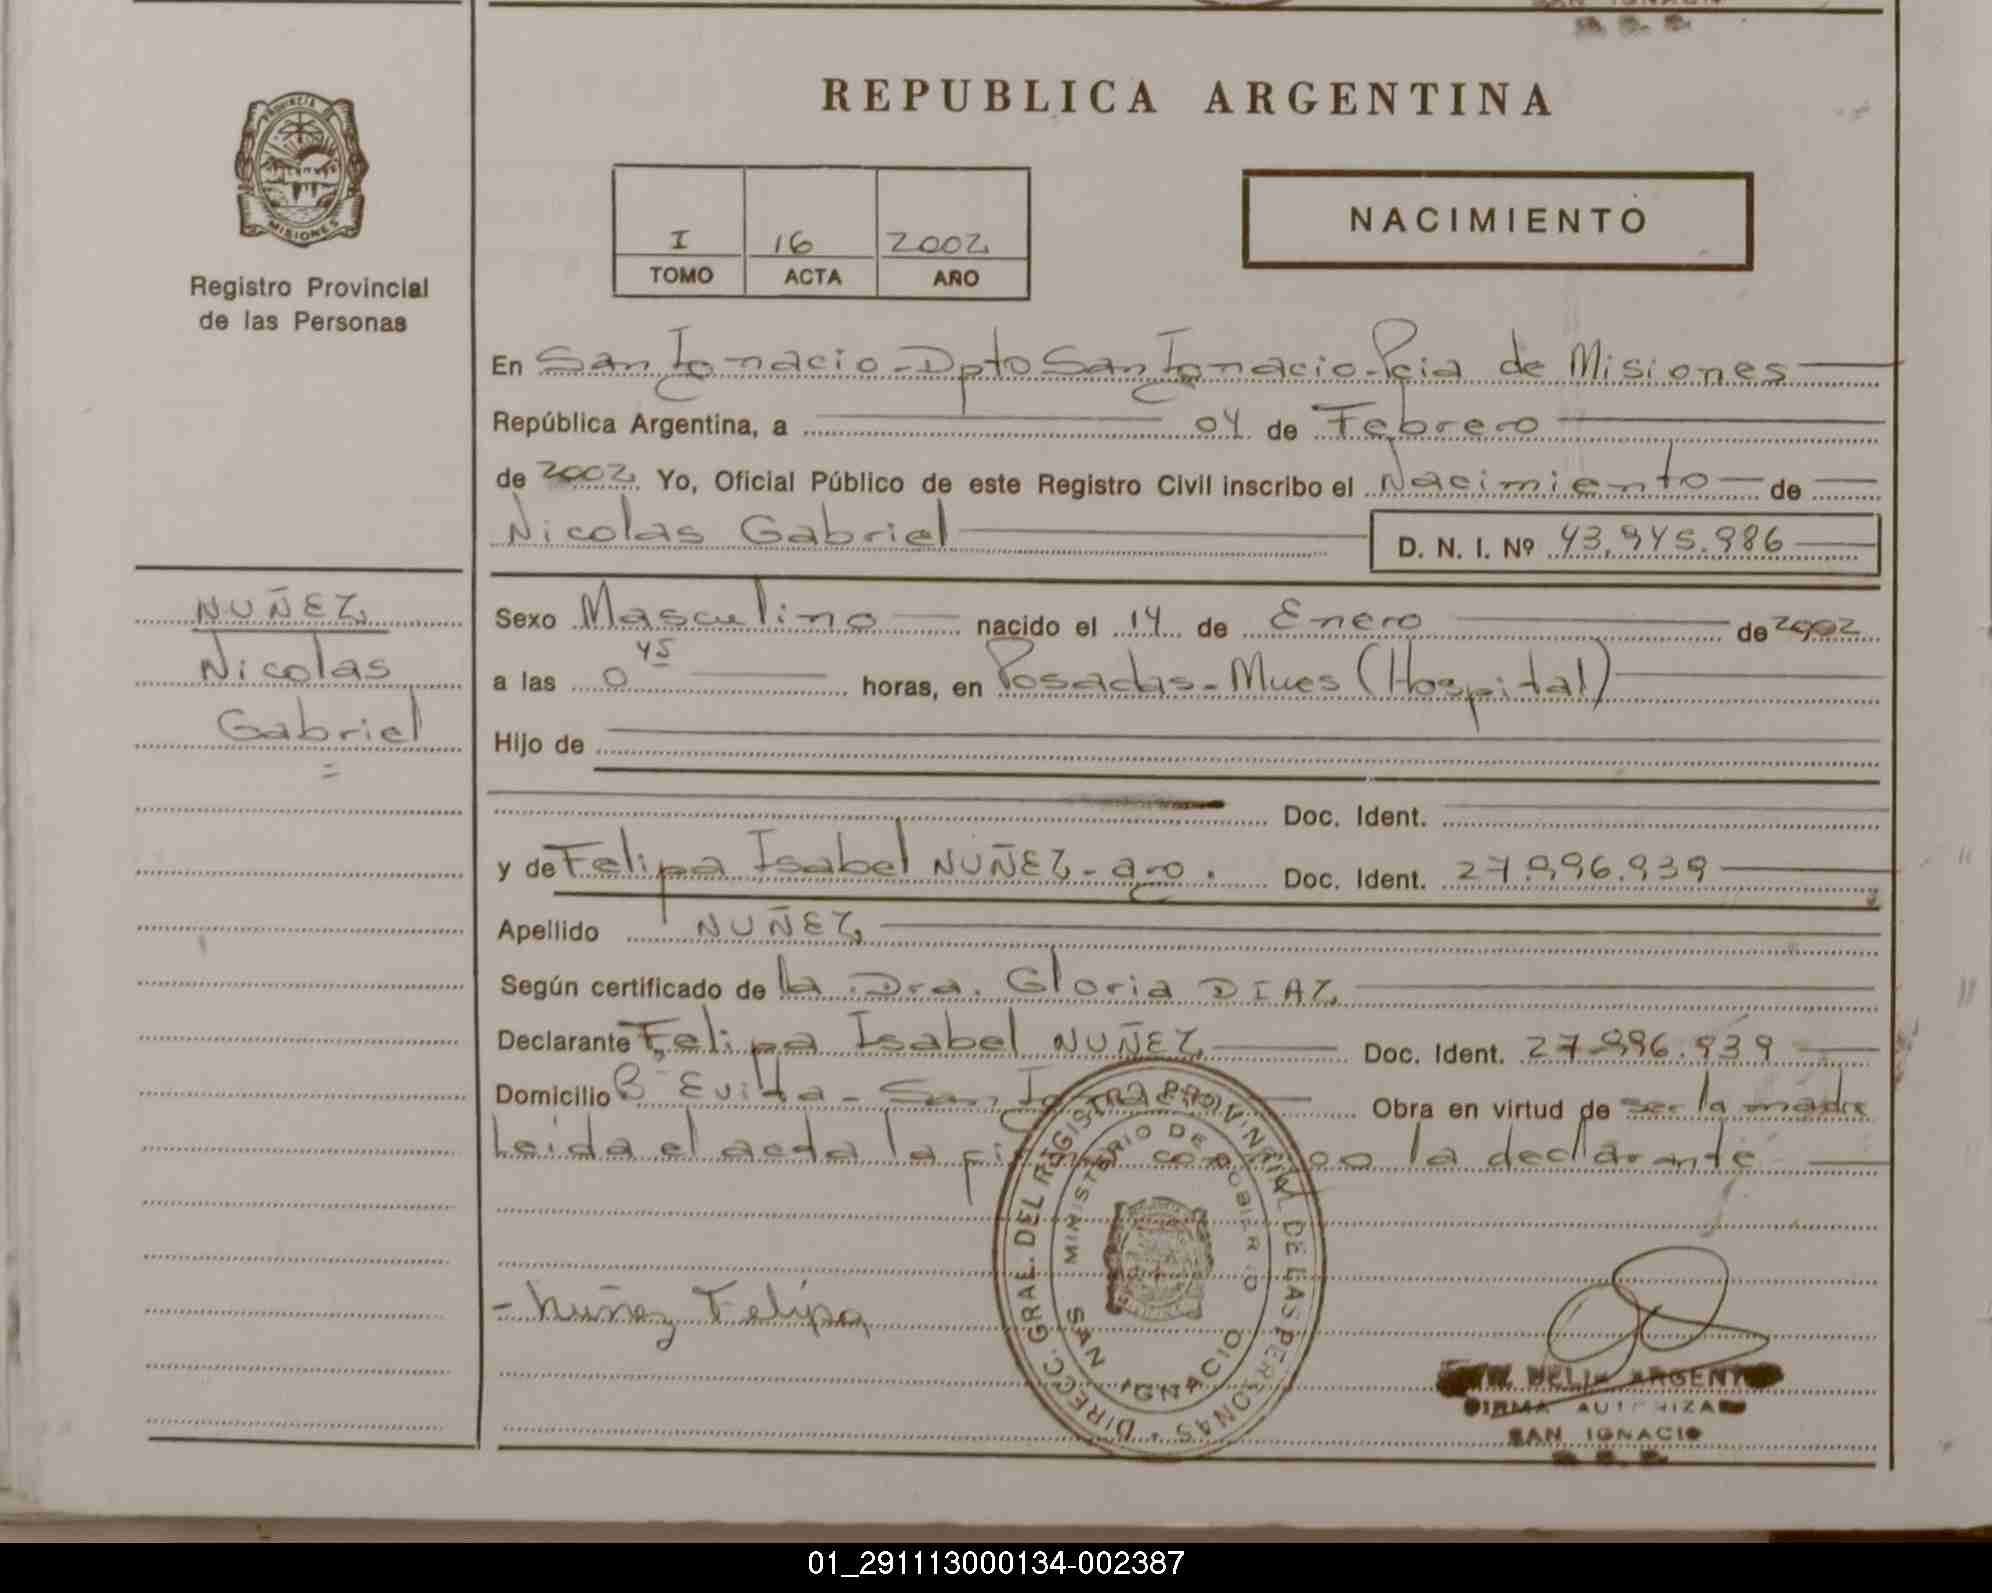 REPUBLICA ARGENTINA
PROVINCIA DE
MISIONES
Registro Provincial
de las Personas
I 16 2002
TOMO ACTA AÑO
NACIMIENTO
En San Ignacio - Dpto San Ignacio - Pcia de Misiones
República Argentina, a 04 de Febrero
de 2002 Yo, Oficial Público de este Registro Civil inscribo el Nacimiento de
Nicolas Gabriel D. N. I. Nº 43.945.986
NUÑEZ
Nicolas
Gabriel
Sexo Masculino nacido el 14 de Enero de 2002
a las 0 45 horas, en Posadas - Mnes (Hospital)
Hijo de
Doc. Ident.
y de Felipa Isabel NUÑEZ - arg. Doc. Ident. 27.996.939
Apellido NUÑEZ
Según certificado de la Dra. Gloria DIAZ
Declarante Felipa Isabel NUÑEZ Doc. Ident. 27.996.939
Domicilio Bº Evita - San Obra en virtud de ser la madre
Leida el acta la la declarante
DIRECC. GRAL. DEL REGISTRO PROVINCIAL DE LAS PERSONAS
MINISTERIO DE GOBIERNO
SAN IGNACIO
- Nuñez Felipa
DELIA ARGENT
FIRMA AUTORIZADA
SAN IGNACIO
01_291113000134-002387